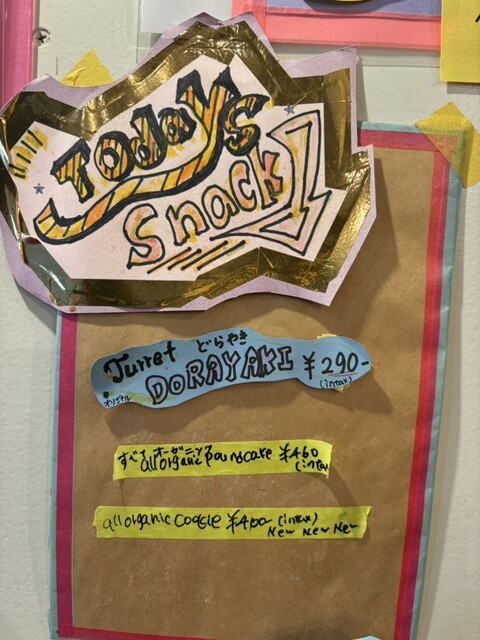 Today's
Snack
Turret どらやき
オリジナル DORAYAKI ¥290-
(intax)
すべて オーガニック
all organic Poundcake ¥460
(intax
all organic cookie ¥400 (intax)
New New New